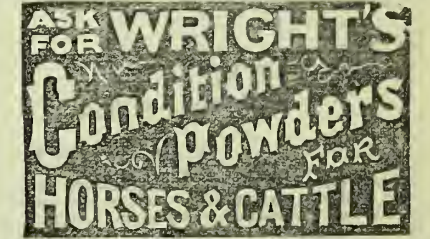 ASK FOR WRIGHT'S
Condition
Powders
FOR
HORSES & CATTLE